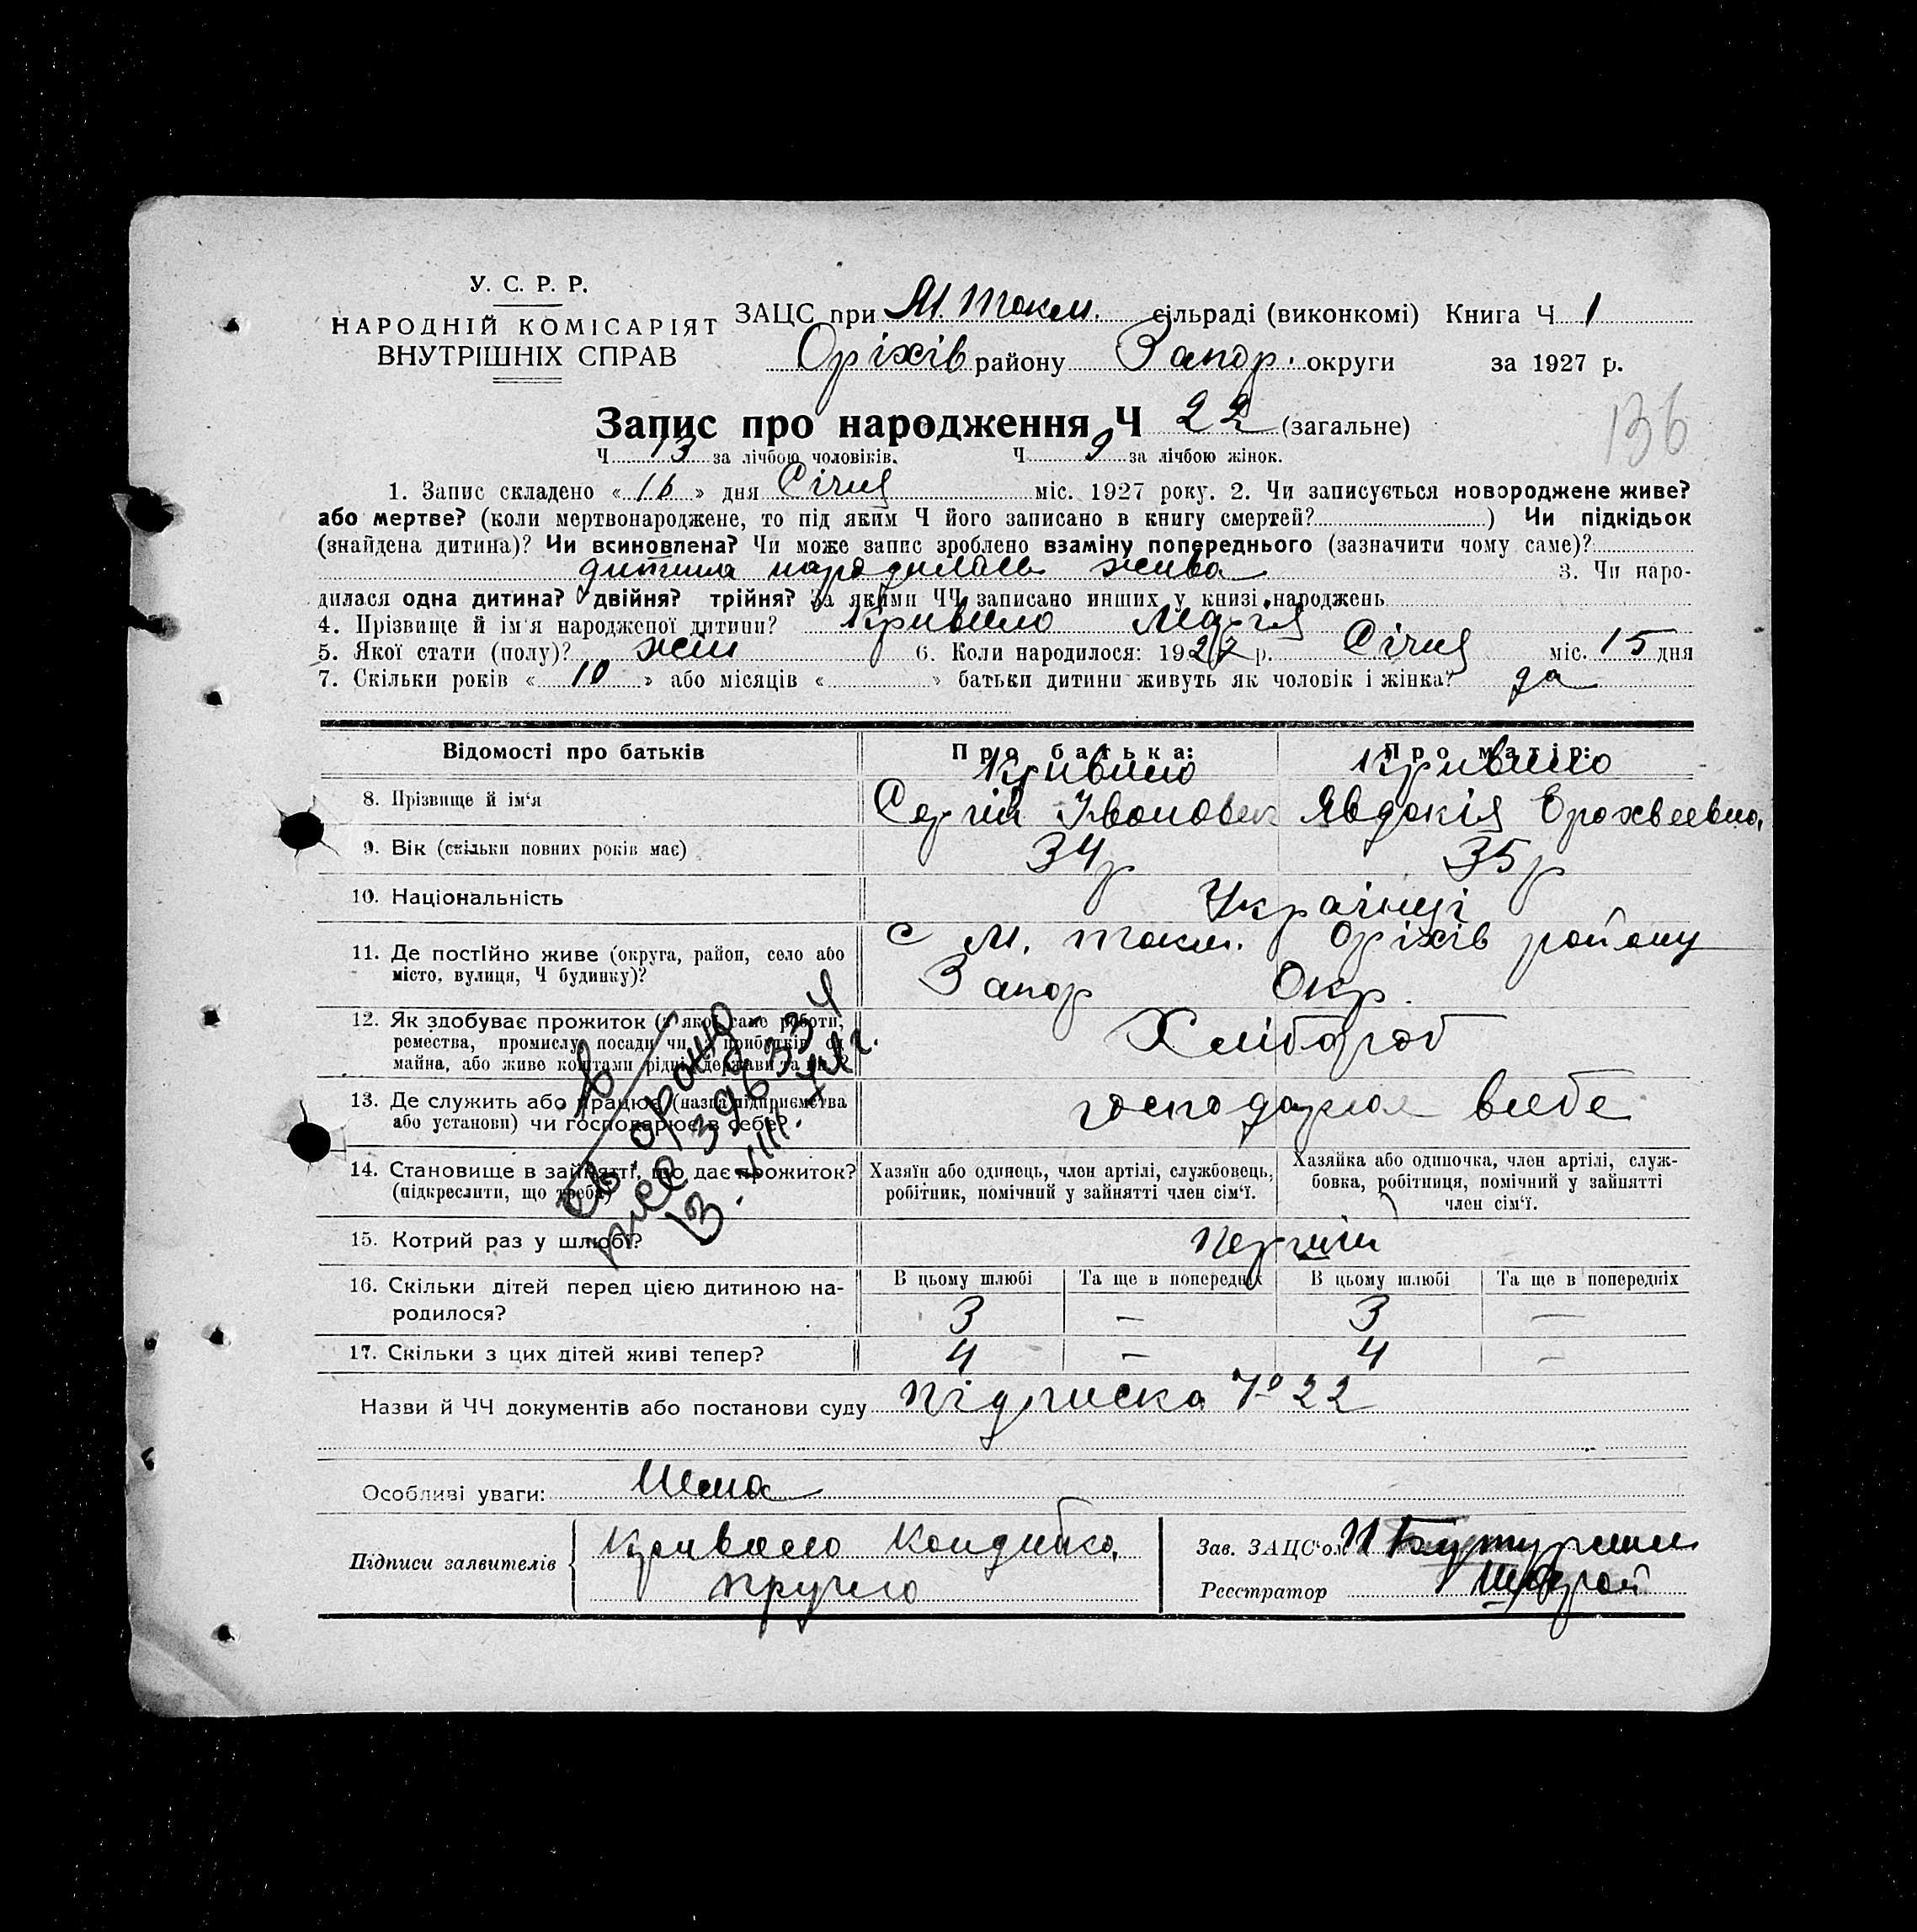 У. С. Р. Р.
НАРОДНІЙ КОМІСАРІЯТ
ВНУТРІШНІХ СПРАВ
ЗАЦС при М. Токм. сільраді (виконкомі) Книга Ч 1
Оріхів району Запор. округи за 1927 р.
136
Запис про народження Ч 22 (загальне)
Ч 13 за лічбою чоловіків. Ч 9 за лічбою жінок.
1. Запис складено « 16 » дня Січня міс. 1927 року. 2. Чи записується новороджене живе?
або мертве? (коли мертвонароджене, то під яким Ч його записано в книгу смертей? ) Чи підкідьок
(знайдена дитина)? Чи всиновлена? Чи може запис зроблено взаміну попереднього (зазначити чому саме)?
дитина народилась жива 3. Чи наро-
дилася одна дитина? двійня? трійня? За якими ЧЧ записано инших у книзі народжень
4. Прізвище й ім'я народженої дитини? Кривило Марія
5. Якої стати (полу)? жін 6. Коли народилося: 1927 р. Січня міс. 15 дня
7. Скільки років « 10 » або місяців « » батьки дитини живуть як чоловік і жінка? да
Відомості про батьків Про батька: Про матір:
Кривило Кривило
8. Прізвище й ім'я Сергій Іванович Явдокія Ерохвеевна
9. Вік (скільки повних років має) 34 р 35 р
10. Національність Українці
11. Де постійно живе (округа, район, село або с М. Токм. Оріхів району
місто, вулиця, Ч будинку)? Запор Окр.
12. Як здобуває прожиток (з якої саме роботи, Хлібороб
ремества, промислу, посади чи з прибутків од
майна, або живе коштами рідні, держави та ин.)?
13. Де служить або працює (назва підприємства господарює в себе
або установи) чи господарює в себе?
14. Становище в зайнятті, що дає прожиток? Хазяїн або одинець, член артілі, службовець, Хазяйка або одиночка, член артілі, служ-
(підкреслити, що треба) робітник, помічний у зайнятті член сім'ї. бовка, робітниця, помічний у зайнятті
член сім'ї.
15. Котрий раз у шлюбі? Перший
16. Скільки дітей перед цією дитиною на- В цьому шлюбі Та ще в попередніх В цьому шлюбі Та ще в попередніх
родилося? 3 — 3 —
17. Скільки з цих дітей живі тепер? 4 — 4 —
Назви й ЧЧ документів або постанови суду підписка № 22
Особливі уваги: Нема
Підписи заявителів Кривило Кондибко
Зав. ЗАЦС'ом
Реєстратор